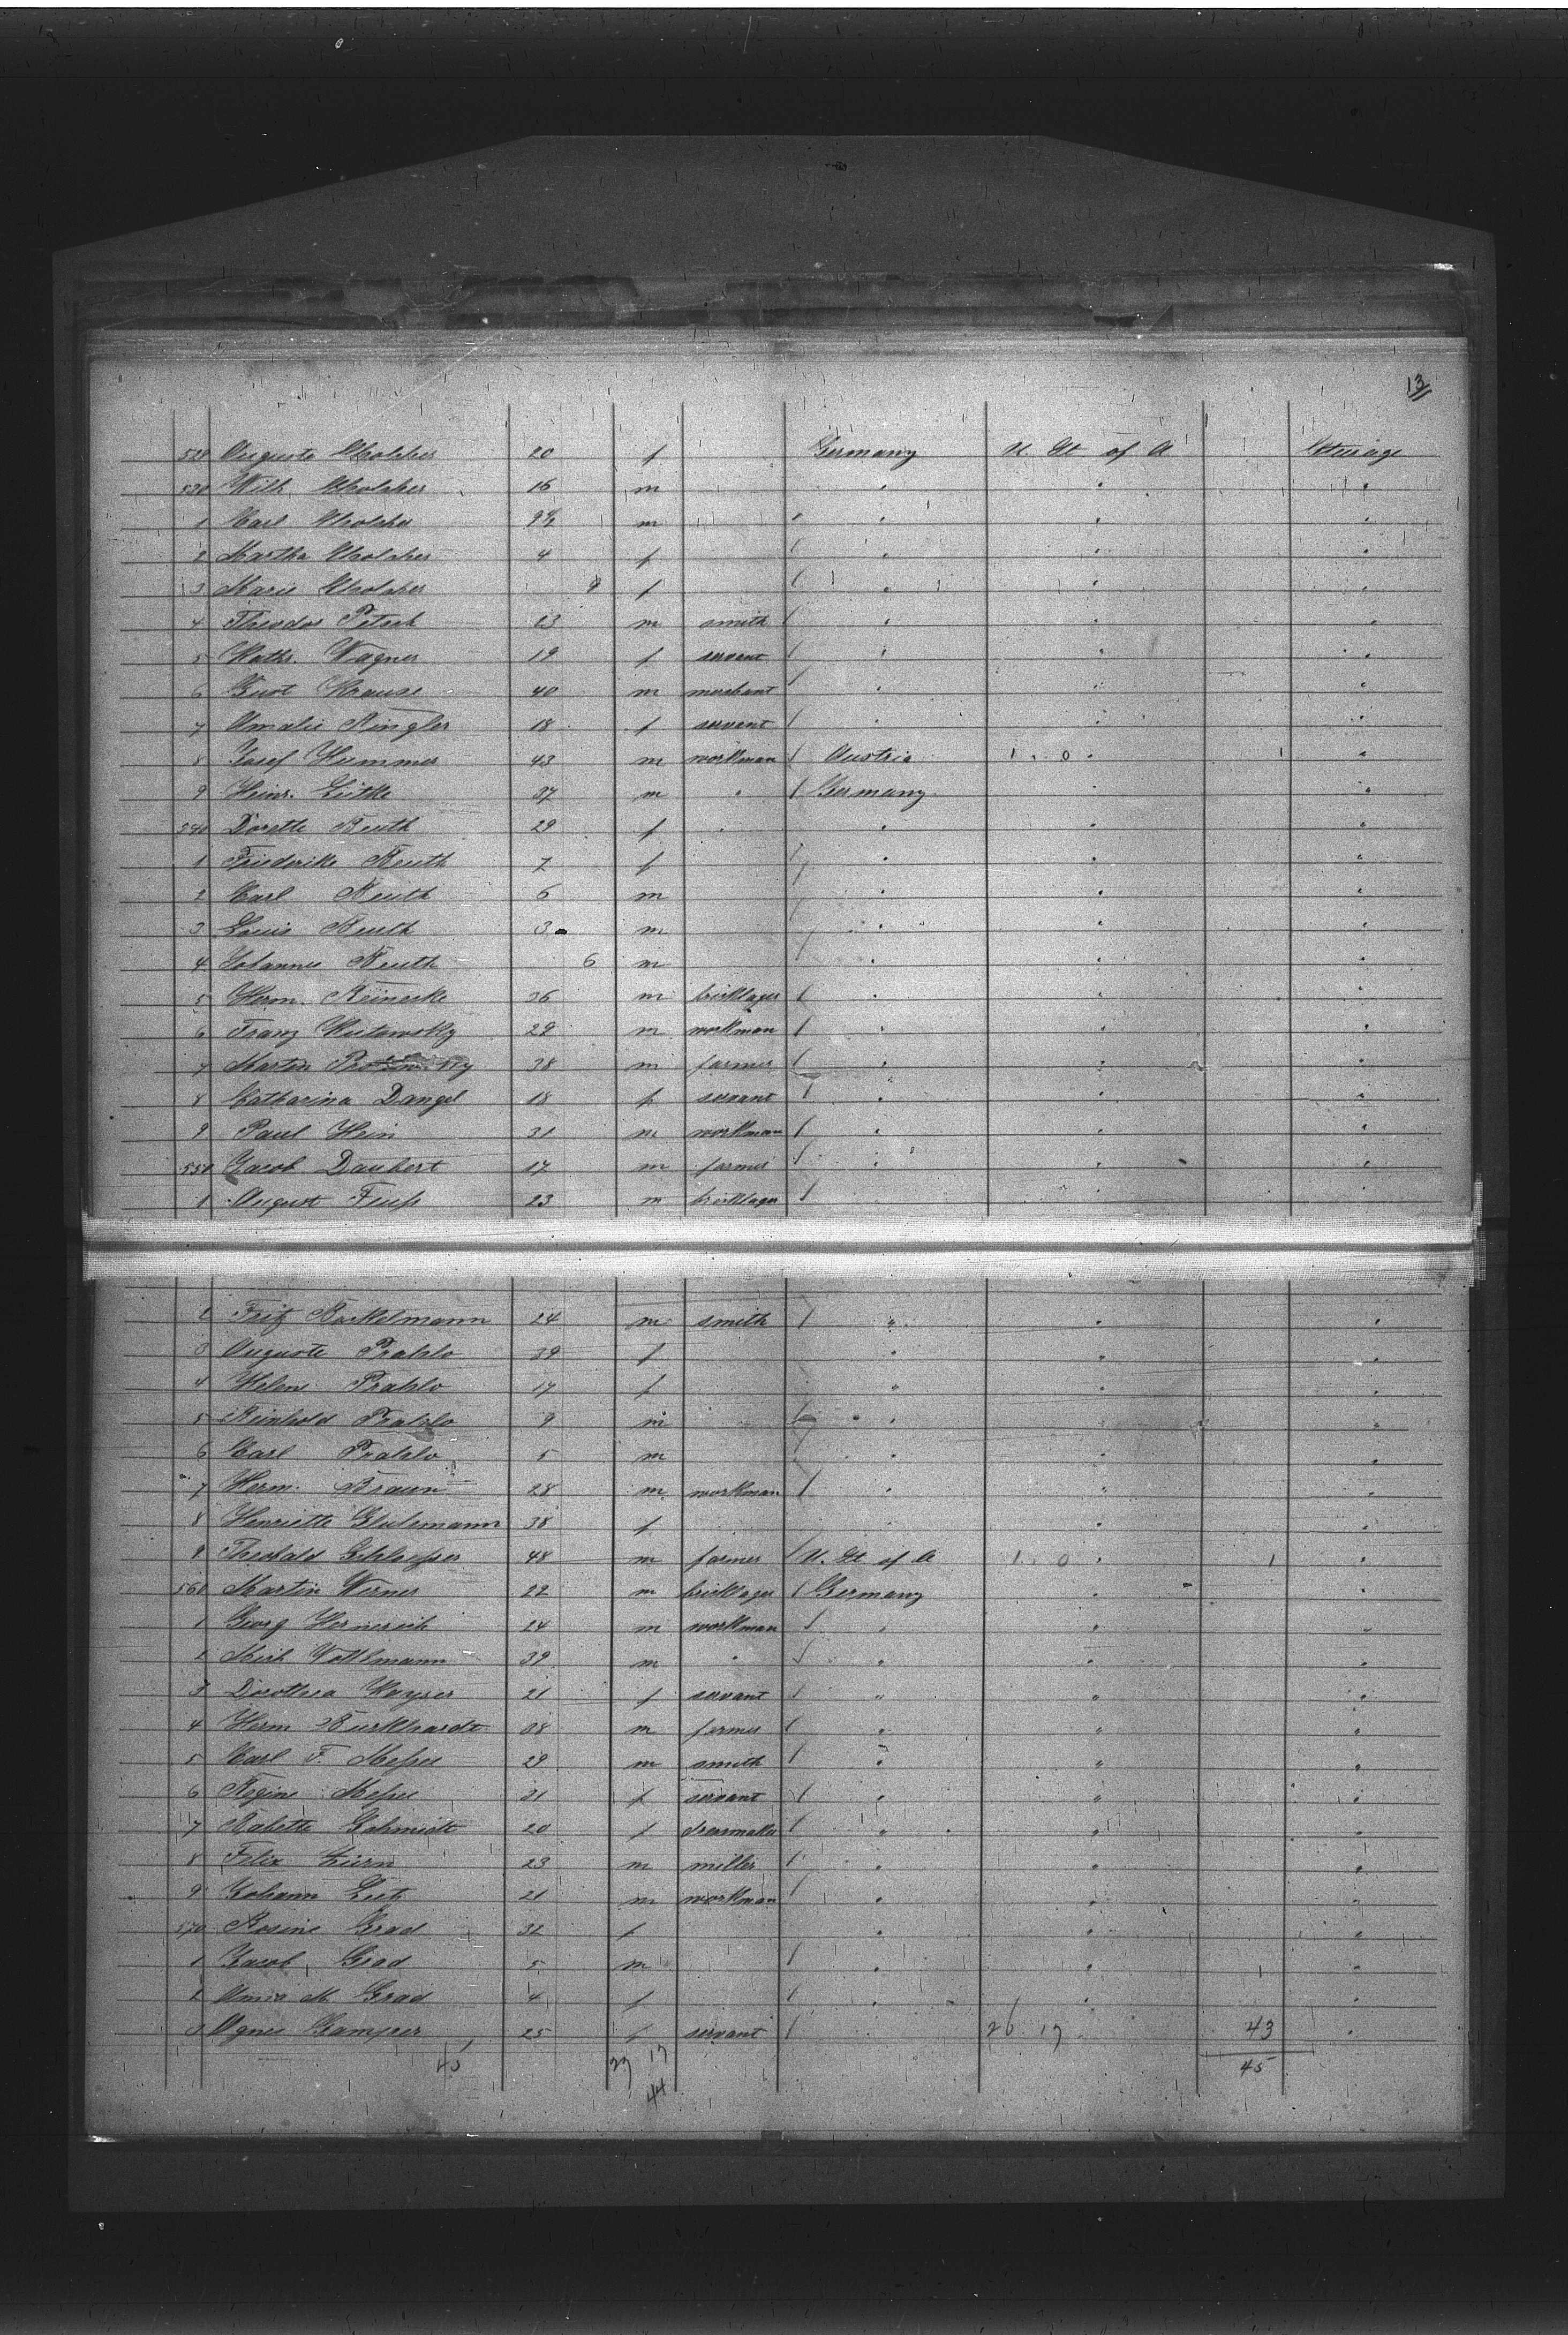 13
529 Auguste 20 f Germany U. St. of A Steerage
530 Wilh. 16 m " " "
1 Carl 9½ m " " "
2 Martha 4 f " " "
3 Marie 9 f " " "
4 Theodor Petsch 23 m smith " " "
5 Kathr. Wagner 19 f servant " " "
6 Gust Krause 40 m merchant " " "
7 Amalie Ringler 18 f servant " " "
8 Josef Hummer 43 m workman Austria 1 . 0 " 1 "
9 Heinr. Lütke 37 m " Germany " "
540 Dorette Reuth 29 f " " " "
1 Friederike Reuth 7 f " " "
2 Carl Reuth 6 m " " "
3 Louis Reuth 3 m " " "
4 Johannes Reuth 6 m " " "
5 Herm. Reinecke 36 m bricklayer " " "
6 Franz 29 m workman " " "
7 Martin 38 m farmer " " "
8 Catharina Dangel 18 f servant " " "
9 Paul Hein 31 m workman " " "
550 Jacob Daubert 17 m farmer " " "
1 August 23 m bricklayer " " "
2 Fritz Bockelmann 24 m smith " " "
3 Auguste Prahlo 39 f " " "
4 Helene Prahlo 17 f " " "
5 Reinhold Prahlo 9 m " " "
6 Carl Prahlo 5 m " " "
7 Herm. Braun 28 m workman " " "
8 Henriette 38 f " " "
9 Theobald 48 m farmer U. St. of A 1 . 0 " 1 "
560 Martin Werner 22 m bricklayer Germany " "
1 Georg 24 m workman " " "
2 Mich 39 m " " " "
3 Dorothea Kayser 21 f servant " " "
4 Herm Burkhardt 38 m farmer " " "
5 Carl F. 29 m smith " " "
6 Regine 21 f servant " " "
7 Babette Schmidt 20 f dressmaker " " "
8 Felix 23 m miller " " "
9 Johann 21 m workman " " "
570 Rosine Grad 32 f " " "
1 Jacob Grad 5 m " " "
2 Anna M. Grad 4 f " " "
3 Agnes 25 f servant 26 17 43 "
45 27 17 45
44